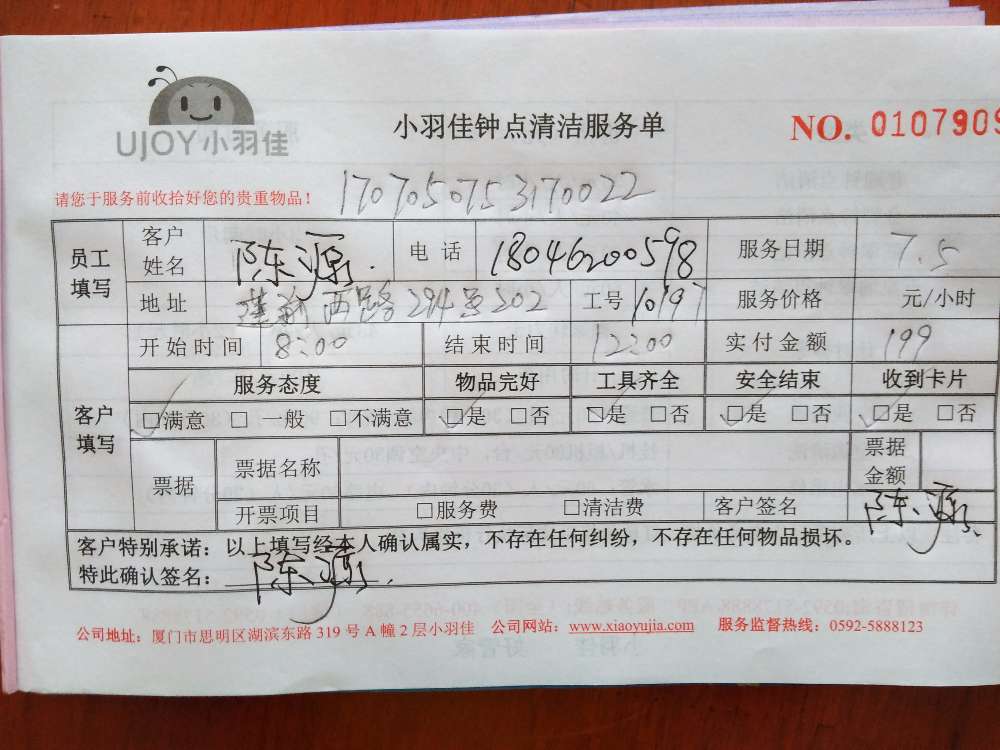 UJOY小羽佳
小羽佳钟点清洁服务单
NO. 0107909
请您于服务前收拾好您的贵重物品！
1707050753170022
员工填写 客户姓名 陈源 电话 18046200598 服务日期 7.5
地址 莲前西路294号502 工号 10197 服务价格 元/小时
客户填写 开始时间 8:00 结束时间 12:00 实付金额 199
服务态度 物品完好 工具齐全 安全结束 收到卡片
□满意 □一般 □不满意 □是 □否 □是 □否 □是 □否 □是 □否
票据 票据名称 票据金额
开票项目 □服务费 □清洁费 客户签名 陈源
客户特别承诺：以上填写经本人确认属实，不存在任何纠纷，不存在任何物品损坏。
特此确认签名：陈源
公司地址：厦门市思明区湖滨东路 319 号 A 幢 2 层小羽佳 公司网站：www.xiaoyujia.com 服务监督热线：0592-5888123